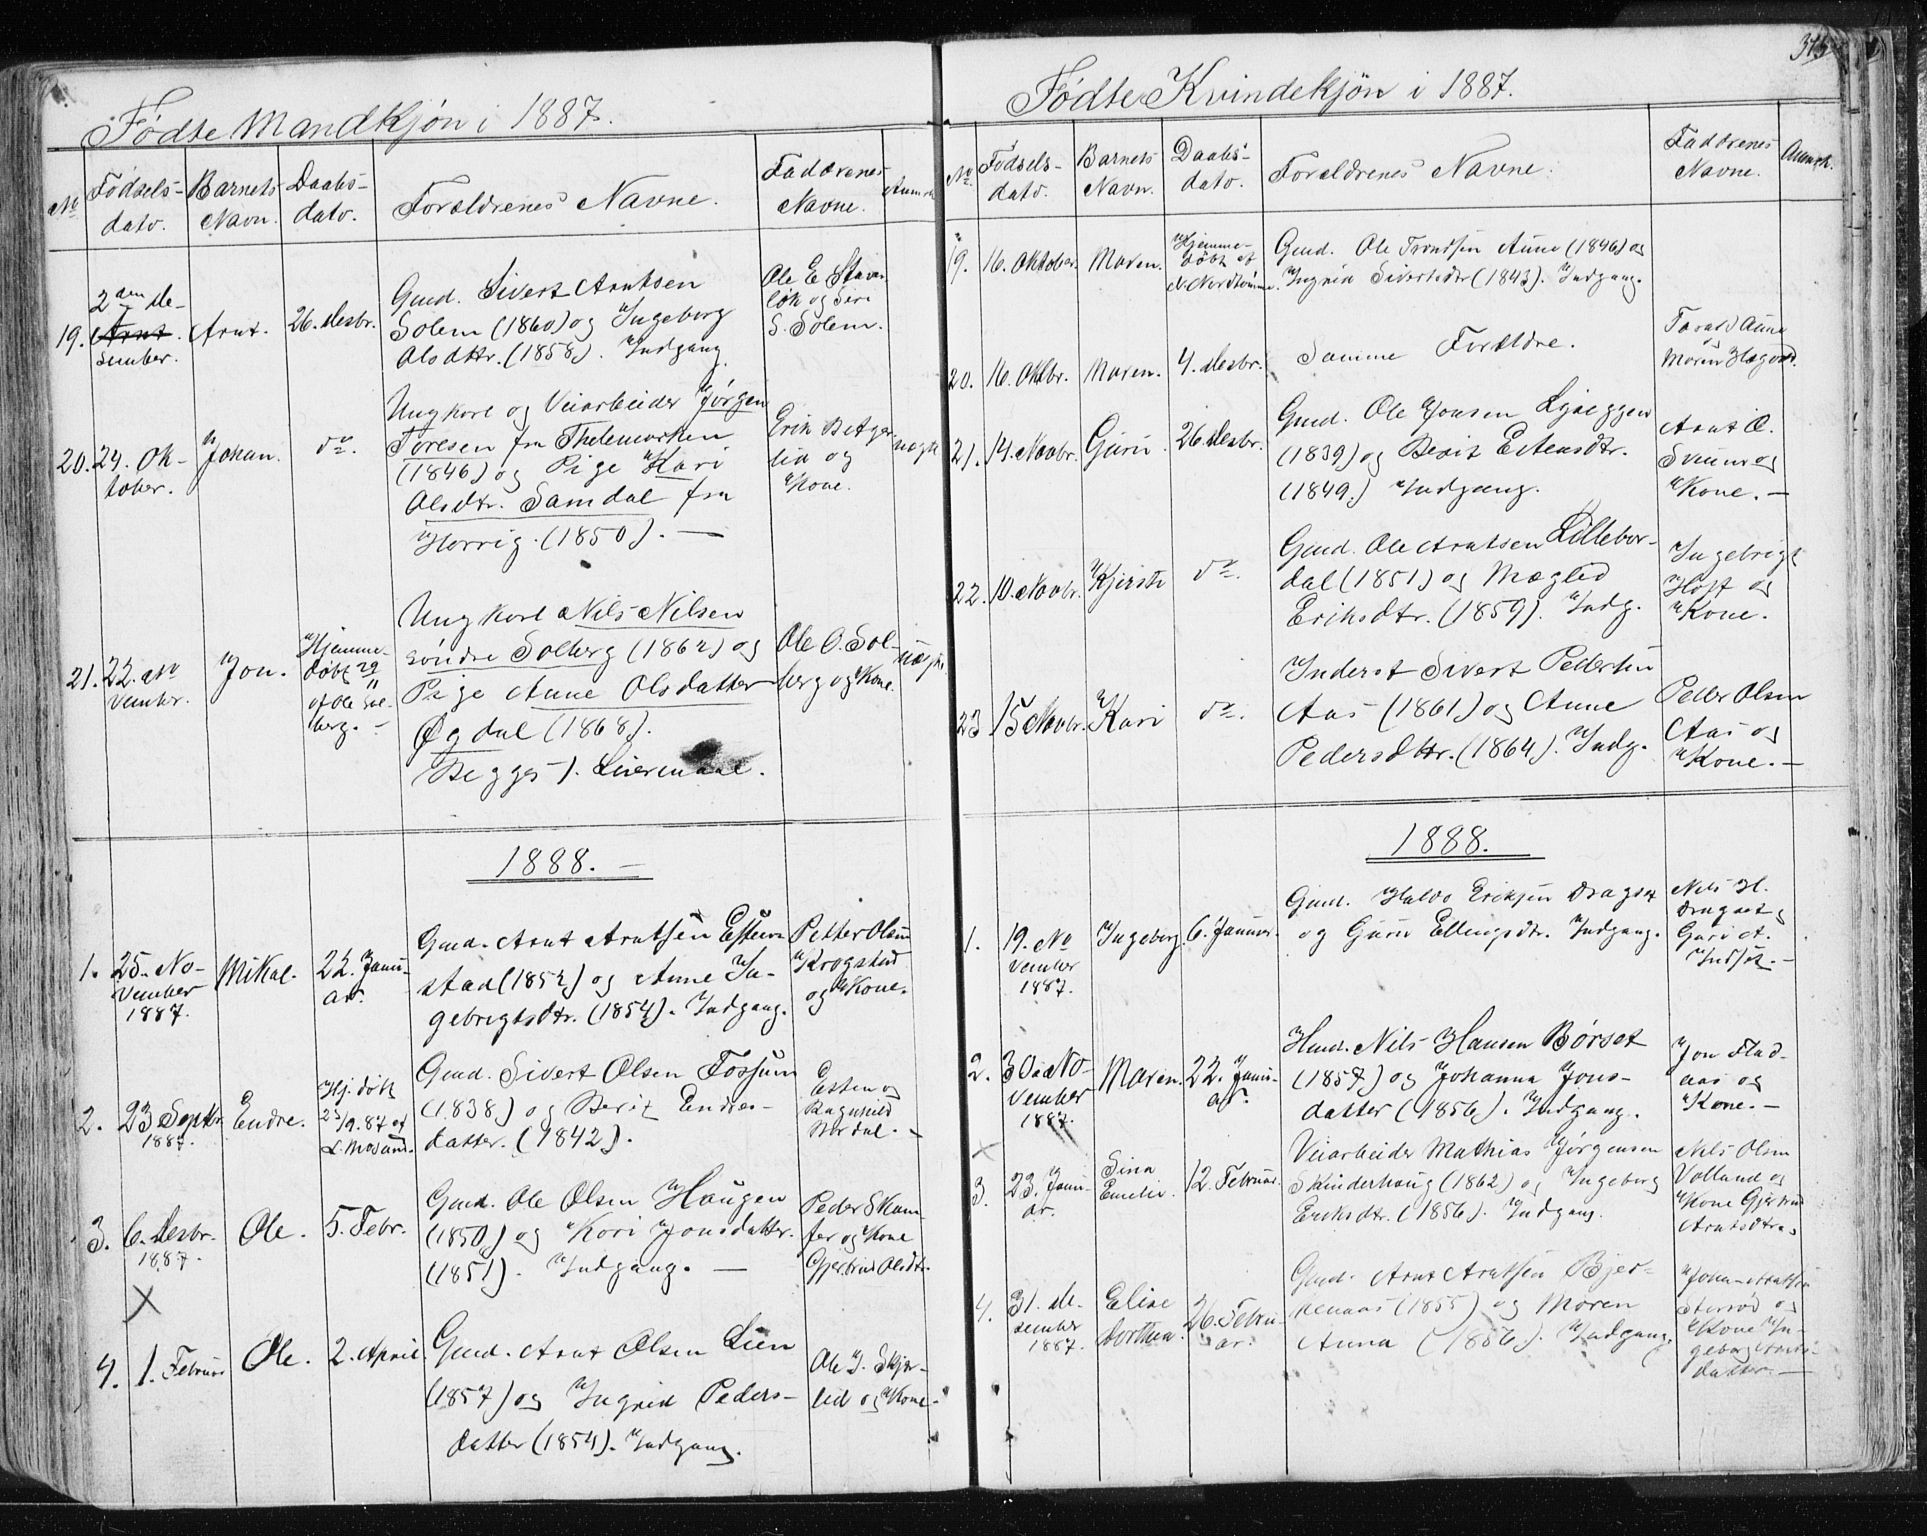 Fødte Mandkjøn i 1887.
No
Fødsels-
dato.
Barnets
Navn.
Daabs-
dato.
Forældrenes Navne.
Faddrenes
Navne.
Anmrk.
19.
2den De-
Arnt
sember.
Arnt.
26. Desbr.
Gmd. Sivert Arntsen
Solem (1860) og Ingeborg
Olsdttr. (1858). Indgang
Ole E. Stava-
løk og Seri
S. Solem.
20.
24. Ok-
tober.
Johan.
do.
Ungkarl og Veiarbeider Jørgen
Toresen fra Thelemarken
(1846) og Pige Kari
Olsdtr. Samdal fra
Horrig. (1850). —
Erik B. Ager-
lia og
Kone.
uægte
21.
22. No
vembr.
Jon.
Hjemme-
døbt 29
11
af Ole Sol-
berg. -
Ungkarl Nils Nilsen
søndre Solberg (1862) og
Pige Anne Olsdatter
Øgdal (1868).
Begges 1. Leiermaal.
Ole O. Sol-
berg og Kone.
uægte.
1888. —
1.
25. No-
vember
1887.
Mikal.
22. Janu-
ar.
Gmd. Arnt Arntsen Estens-
stad (1852) og Anne In-
gebrigtsdtr. (1854). Indgang.
Petter Olsen
Krogstad
og Kone.
2.
23 Septbr
1887.
Endre.
Hj. døbt
25/9.87 af
L. Mosand.
Gmd. Sivert Olsen Fossum
(1838) og Berit Endres-
datter. (1842).
Esten og
Ragnhild
Nordal. -
3.
6. Desbr.
1887.
Ole.
5. Febr.
Gmd. Ole Olsen Haugen
(1850) og Kari Jonsdatter.
(1851). Indgang. —
Peder Skam-
fer og Kone
Gjertrud Olsdtr.
X
4.
1. Februar
Ole.
2. April.
Gmd. Arnt Olsen Lien
(1857) og Ingrid Peders-
datter (1854). Indgang.
Ole J. Skjær-
lid og Kone.
375
Fødte Kvindekjøn i 1887.
No.
Fødsels-
dato.
Barnets
Navn.
Daabs-
dato.
Forældrenes Navne.
Faddrenes
Navne.
Anmrk.
19.
16. Oktober.
Maren.
Hjemme-
døbt af
N. Nordtømme.
Gmd. Ole Trondsen Aune (1846) og
Ingrid Sivertsdtr (1843). Indgang.
20.
16. Oktbr.
Maren.
4. Desbr.
Samme Forældre.
Tarald Aune
og
Maren Hægvold.
21.
14. Novbr.
Guru
26. Desbr.
Gmd. Ole Jonsen Lysæggen
(1839) og Berit Estensdtr.
(1849.) Indgang.
Arnt O.
Svinn og
Kone. —
22.
10. Novbr.
Kjersti
do.
Gmd. Ole Arntsen Lillebor-
dal (1851) og Magled
Eriksdtr. (1859). Indg.
Ingebrigt
Hoft og
Kone.
23
15 Novbr.
Kari
do.
Inderst Sivert Pedersen
Aas (1861) og Anne
Pedersdttr. (1864). Indg.
Peder Olsen
Aas og
Kone. —
1888.
1.
19. No
vember
1887.
Ingeborg.
6. Januar.
Gmd. Haldo Eriksen Dragset
og Guru Ellingsdtr. Indgang.
Nils H.
Dragset og
Guri A.
Indset. —
2.
30. No-
vember
1887.
Maren.
22. Janu-
ar.
Hmd. Nils Hansen Børset
(1857) og Johanna Jons-
datter (1856). Indgang.
Jon Flad-
aas og
Kone. —
X
3.
23. Janu-
ar.
Sina
Emelie.
12. Februar.
Veiarbeider Mathias Jørgensen
Skinderhaug (1862) og Ingeborg
Eriksdtr. (1856). Indgang.
Nils Olsen
Volland og
Kone Gjertrud
Arntsdtr.
4.
31. De-
sember
1887.
Elise
Dorthea.
26. Febru-
ar.
Gmd. Arnt Arntsen Bjer-
kenaas (1855) og Maren
Anna (1856). Indgang.
Johan Arntsen
og
Kone In-
geborg Arnts-
datter. —